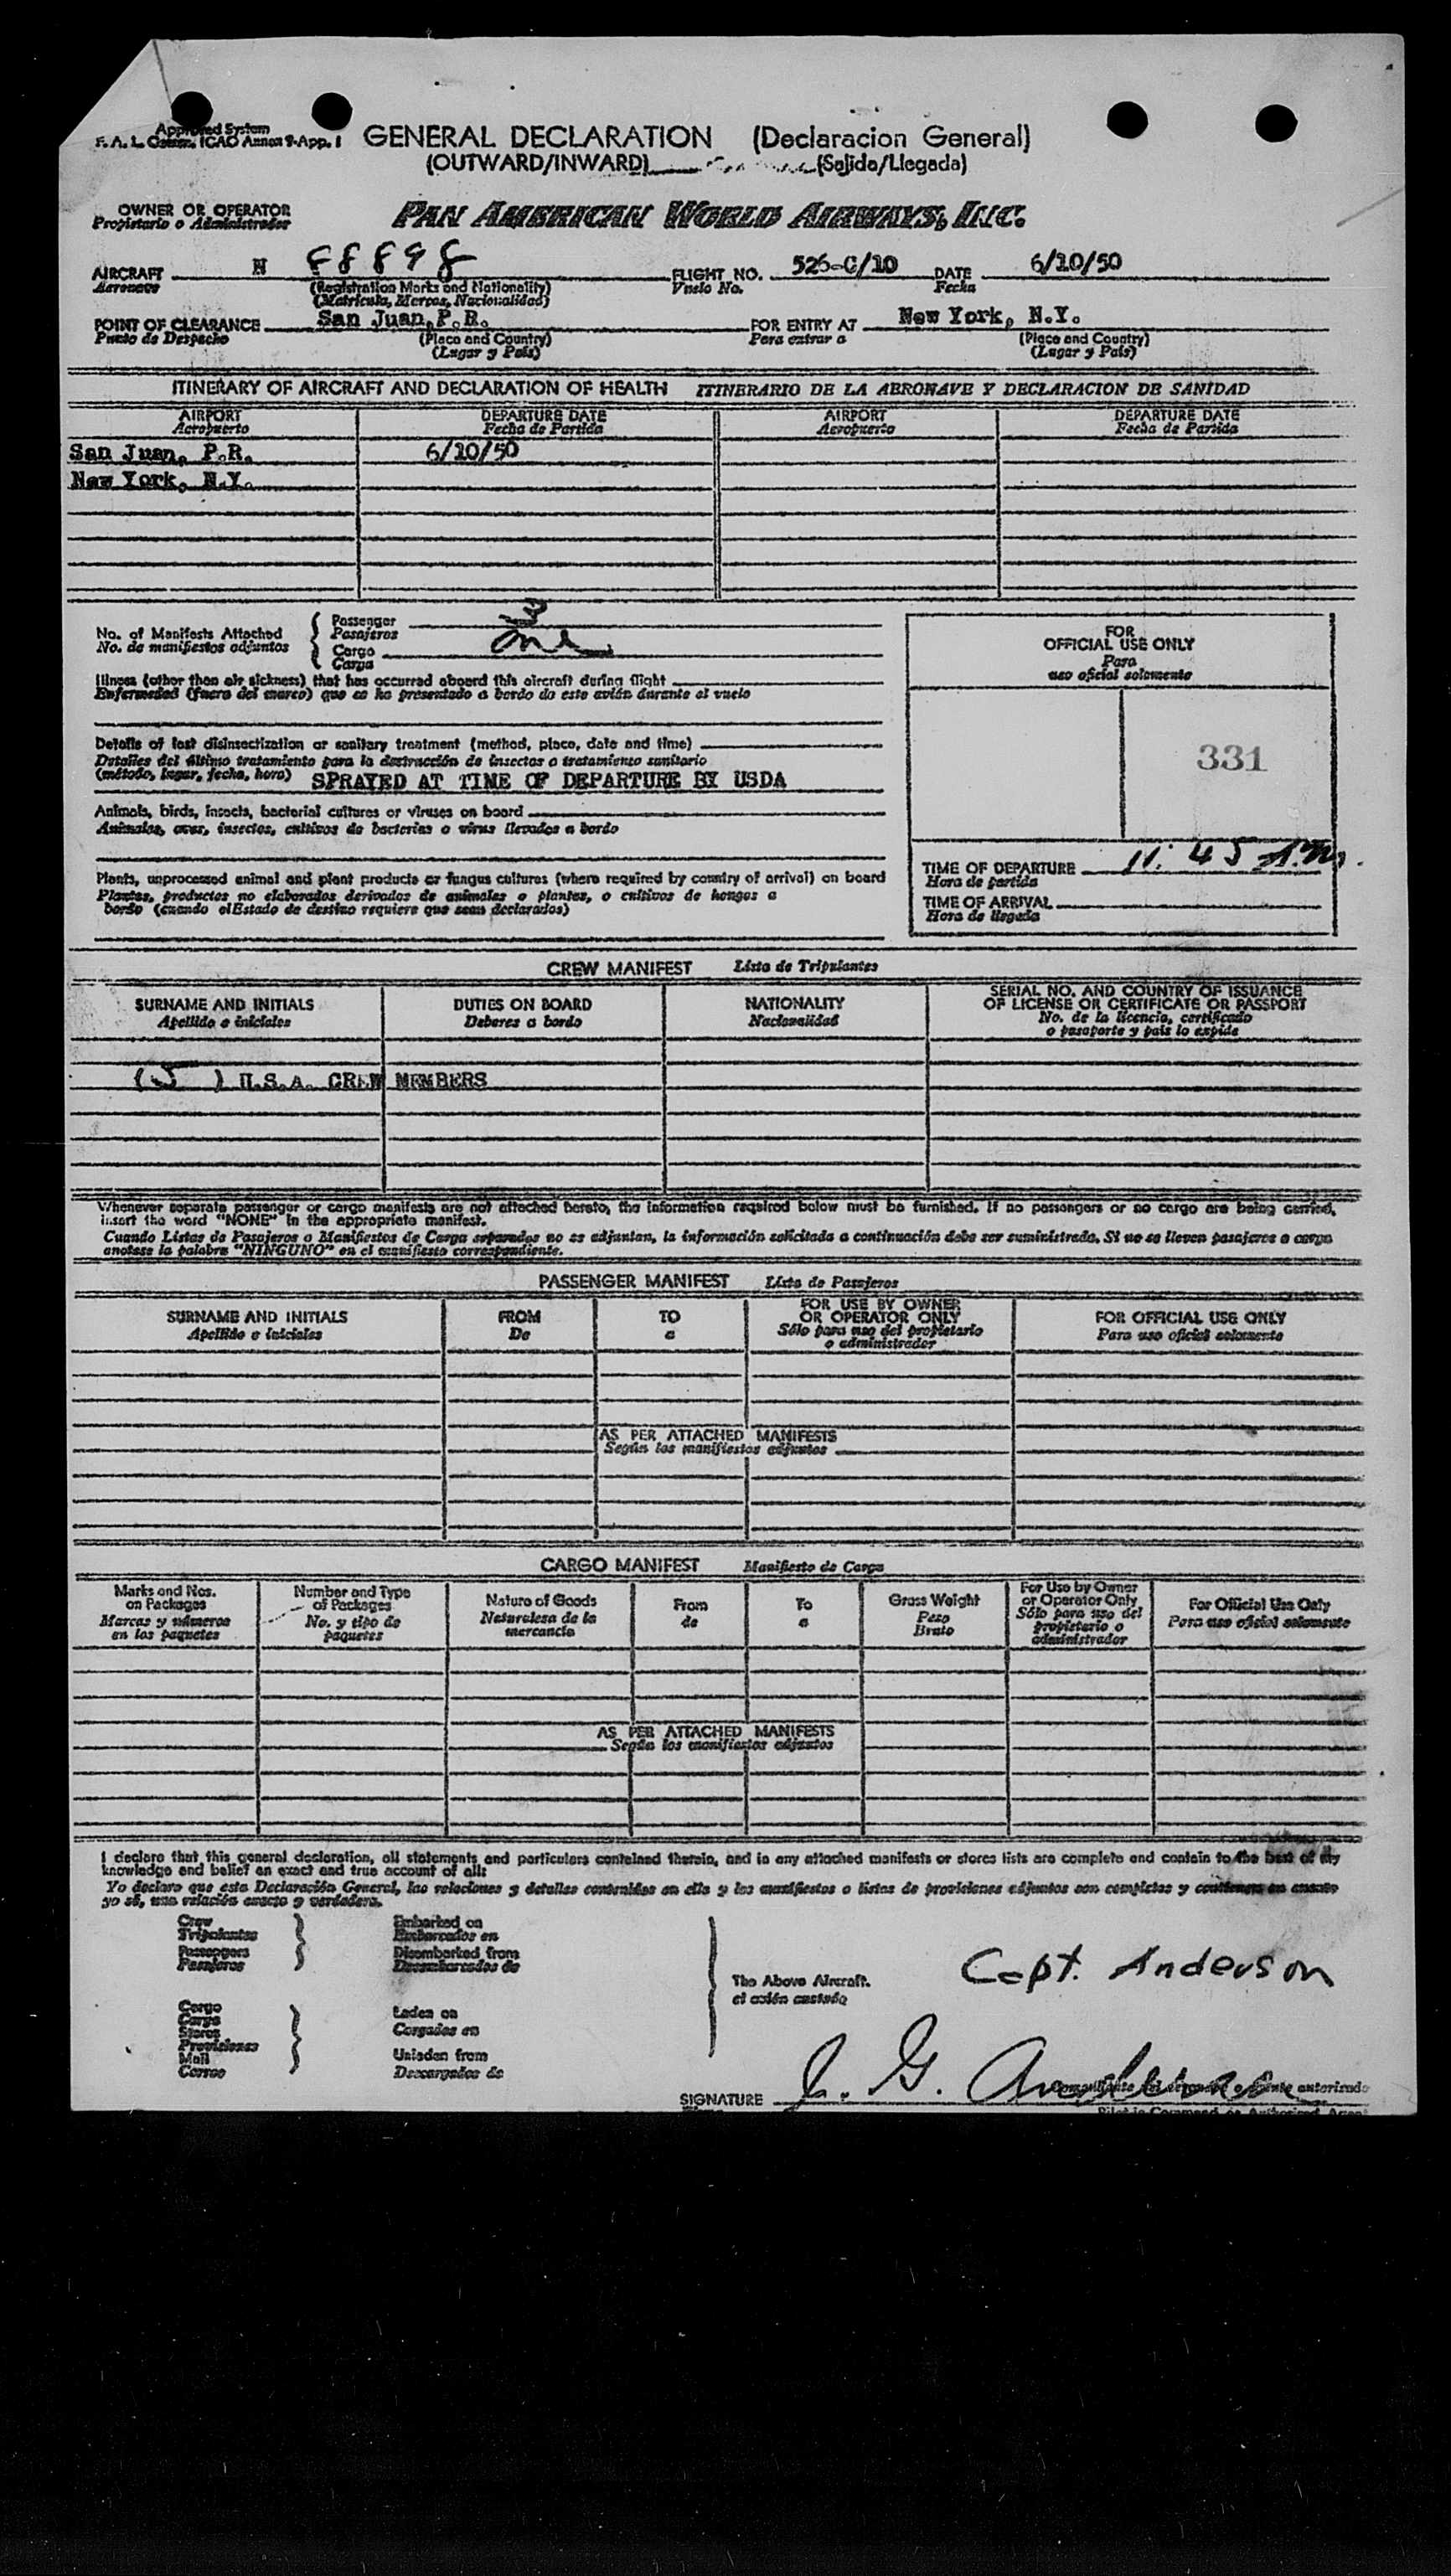 Approved System
F. A. L. Comm. ICAO Annex 9-App. 1
GENERAL DECLARATION (Declaracion General)
(OUTWARD/INWARD) (Salida/Llegada)
OWNER OR OPERATOR
Propietario o Administrador
PAN AMERICAN WORLD AIRWAYS, INC.
AIRCRAFT N 88898 FLIGHT NO. 526-C/10 DATE 6/10/50
Aeronave (Registration Marks and Nationality) Vuelo No. Fecha
(Matricula, Marcas, Nacionalidad)
POINT OF CLEARANCE San Juan, P.R. FOR ENTRY AT New York, N.Y.
Punto de Despacho (Place and Country) Para entrar a (Place and Country)
(Lugar y País) (Lugar y País)
ITINERARY OF AIRCRAFT AND DECLARATION OF HEALTH ITINERARIO DE LA AERONAVE Y DECLARACION DE SANIDAD
AIRPORT DEPARTURE DATE AIRPORT DEPARTURE DATE
Aeropuerto Fecha de Partida Aeropuerto Fecha de Partida
San Juan, P.R. 6/10/50
New York, N.Y.
No. of Manifests Attached
No. de manifiestos adjuntos
Passenger 3
Pasajeros
Cargo one
Carga
Illness (other than air sickness) that has occurred aboard this aircraft during flight
Enfermedad (fuera del mareo) que se ha presentado a bordo de este avión durante el vuelo
Details of last disinsectization or sanitary treatment (method, place, date and time)
Detalles del último tratamiento para la destrucción de insectos o tratamiento sanitario
(método, lugar, fecha, hora) SPRAYED AT TIME OF DEPARTURE BY USDA
Animals, birds, insects, bacterial cultures or viruses on board
Animales, aves, insectos, cultivos de bacterias o virus llevados a bordo
Plants, unprocessed animal and plant products or fungus cultures (where required by country of arrival) on board
Plantas, productos no elaborados derivados de animales o plantas, o cultivos de hongos a
bordo (cuando el Estado de destino requiere que sean declarados)
FOR
OFFICIAL USE ONLY
Para
uso oficial solamente
331
TIME OF DEPARTURE 11:45 A.M.
Hora de partida
TIME OF ARRIVAL
Hora de llegada
CREW MANIFEST Lista de Tripulantes
SURNAME AND INITIALS DUTIES ON BOARD NATIONALITY SERIAL NO. AND COUNTRY OF ISSUANCE
OF LICENSE OR CERTIFICATE OR PASSPORT
Apellido e iniciales Deberes a bordo Nacionalidad No. de la licencia, certificado
o pasaporte y país lo expide
(5) U.S.A. CREW MEMBERS
Whenever separate passenger or cargo manifests are not attached hereto, the information required below must be furnished. If no passengers or no cargo are being carried,
insert the word "NONE" in the appropriate manifest.
Cuando Listas de Pasajeros o Manifiestos de Carga separados no se adjuntan, la información solicitada a continuación debe ser suministrada. Si no se lleven pasajeros o carga
anotase la palabra "NINGUNO" en el manifiesto correspondiente.
PASSENGER MANIFEST Lista de Pasajeros
SURNAME AND INITIALS FROM TO FOR USE BY OWNER
OR OPERATOR ONLY FOR OFFICIAL USE ONLY
Apellido e iniciales De a Sólo para uso del propietario
o administrador Para uso oficial solamente
AS PER ATTACHED MANIFESTS
Según los manifiestos adjuntos
CARGO MANIFEST Manifiesto de Carga
Marks and Nos.
on Packages
Marcas y números
en los paquetes
Number and Type
of Packages
No. y tipo de
paquetes
Nature of Goods
Naturaleza de la
mercancía
From
de
To
a
Gross Weight
Peso
Bruto
For Use by Owner
or Operator Only
Sólo para uso del
propietario o
administrador
For Official Use Only
Para uso oficial solamente
AS PER ATTACHED MANIFESTS
Según los manifiestos adjuntos
I declare that this general declaration, all statements and particulars contained therein, and in any attached manifests or stores lists are complete and contain to the best of my
knowledge and belief an exact and true account of all:
Yo declaro que esta Declaración General, las relaciones y detalles contenidos en ella y los manifiestos o listas de provisiones adjuntos son completas y contienen en cuanto
yo sé, una relación exacta y verdadera.
Crew
Tripulantes
Passengers
Pasajeros
Embarked on
Embarcados en
Disembarked from
Desembarcados de
Cargo
Carga
Stores
Provisiones
Mail
Correo
Laden on
Cargados en
Unladen from
Descargados de
The Above Aircraft.
el avión
Capt. Anderson
SIGNATURE J. G. Anderson
autorizado
Pilot in Command or Authorized Agent